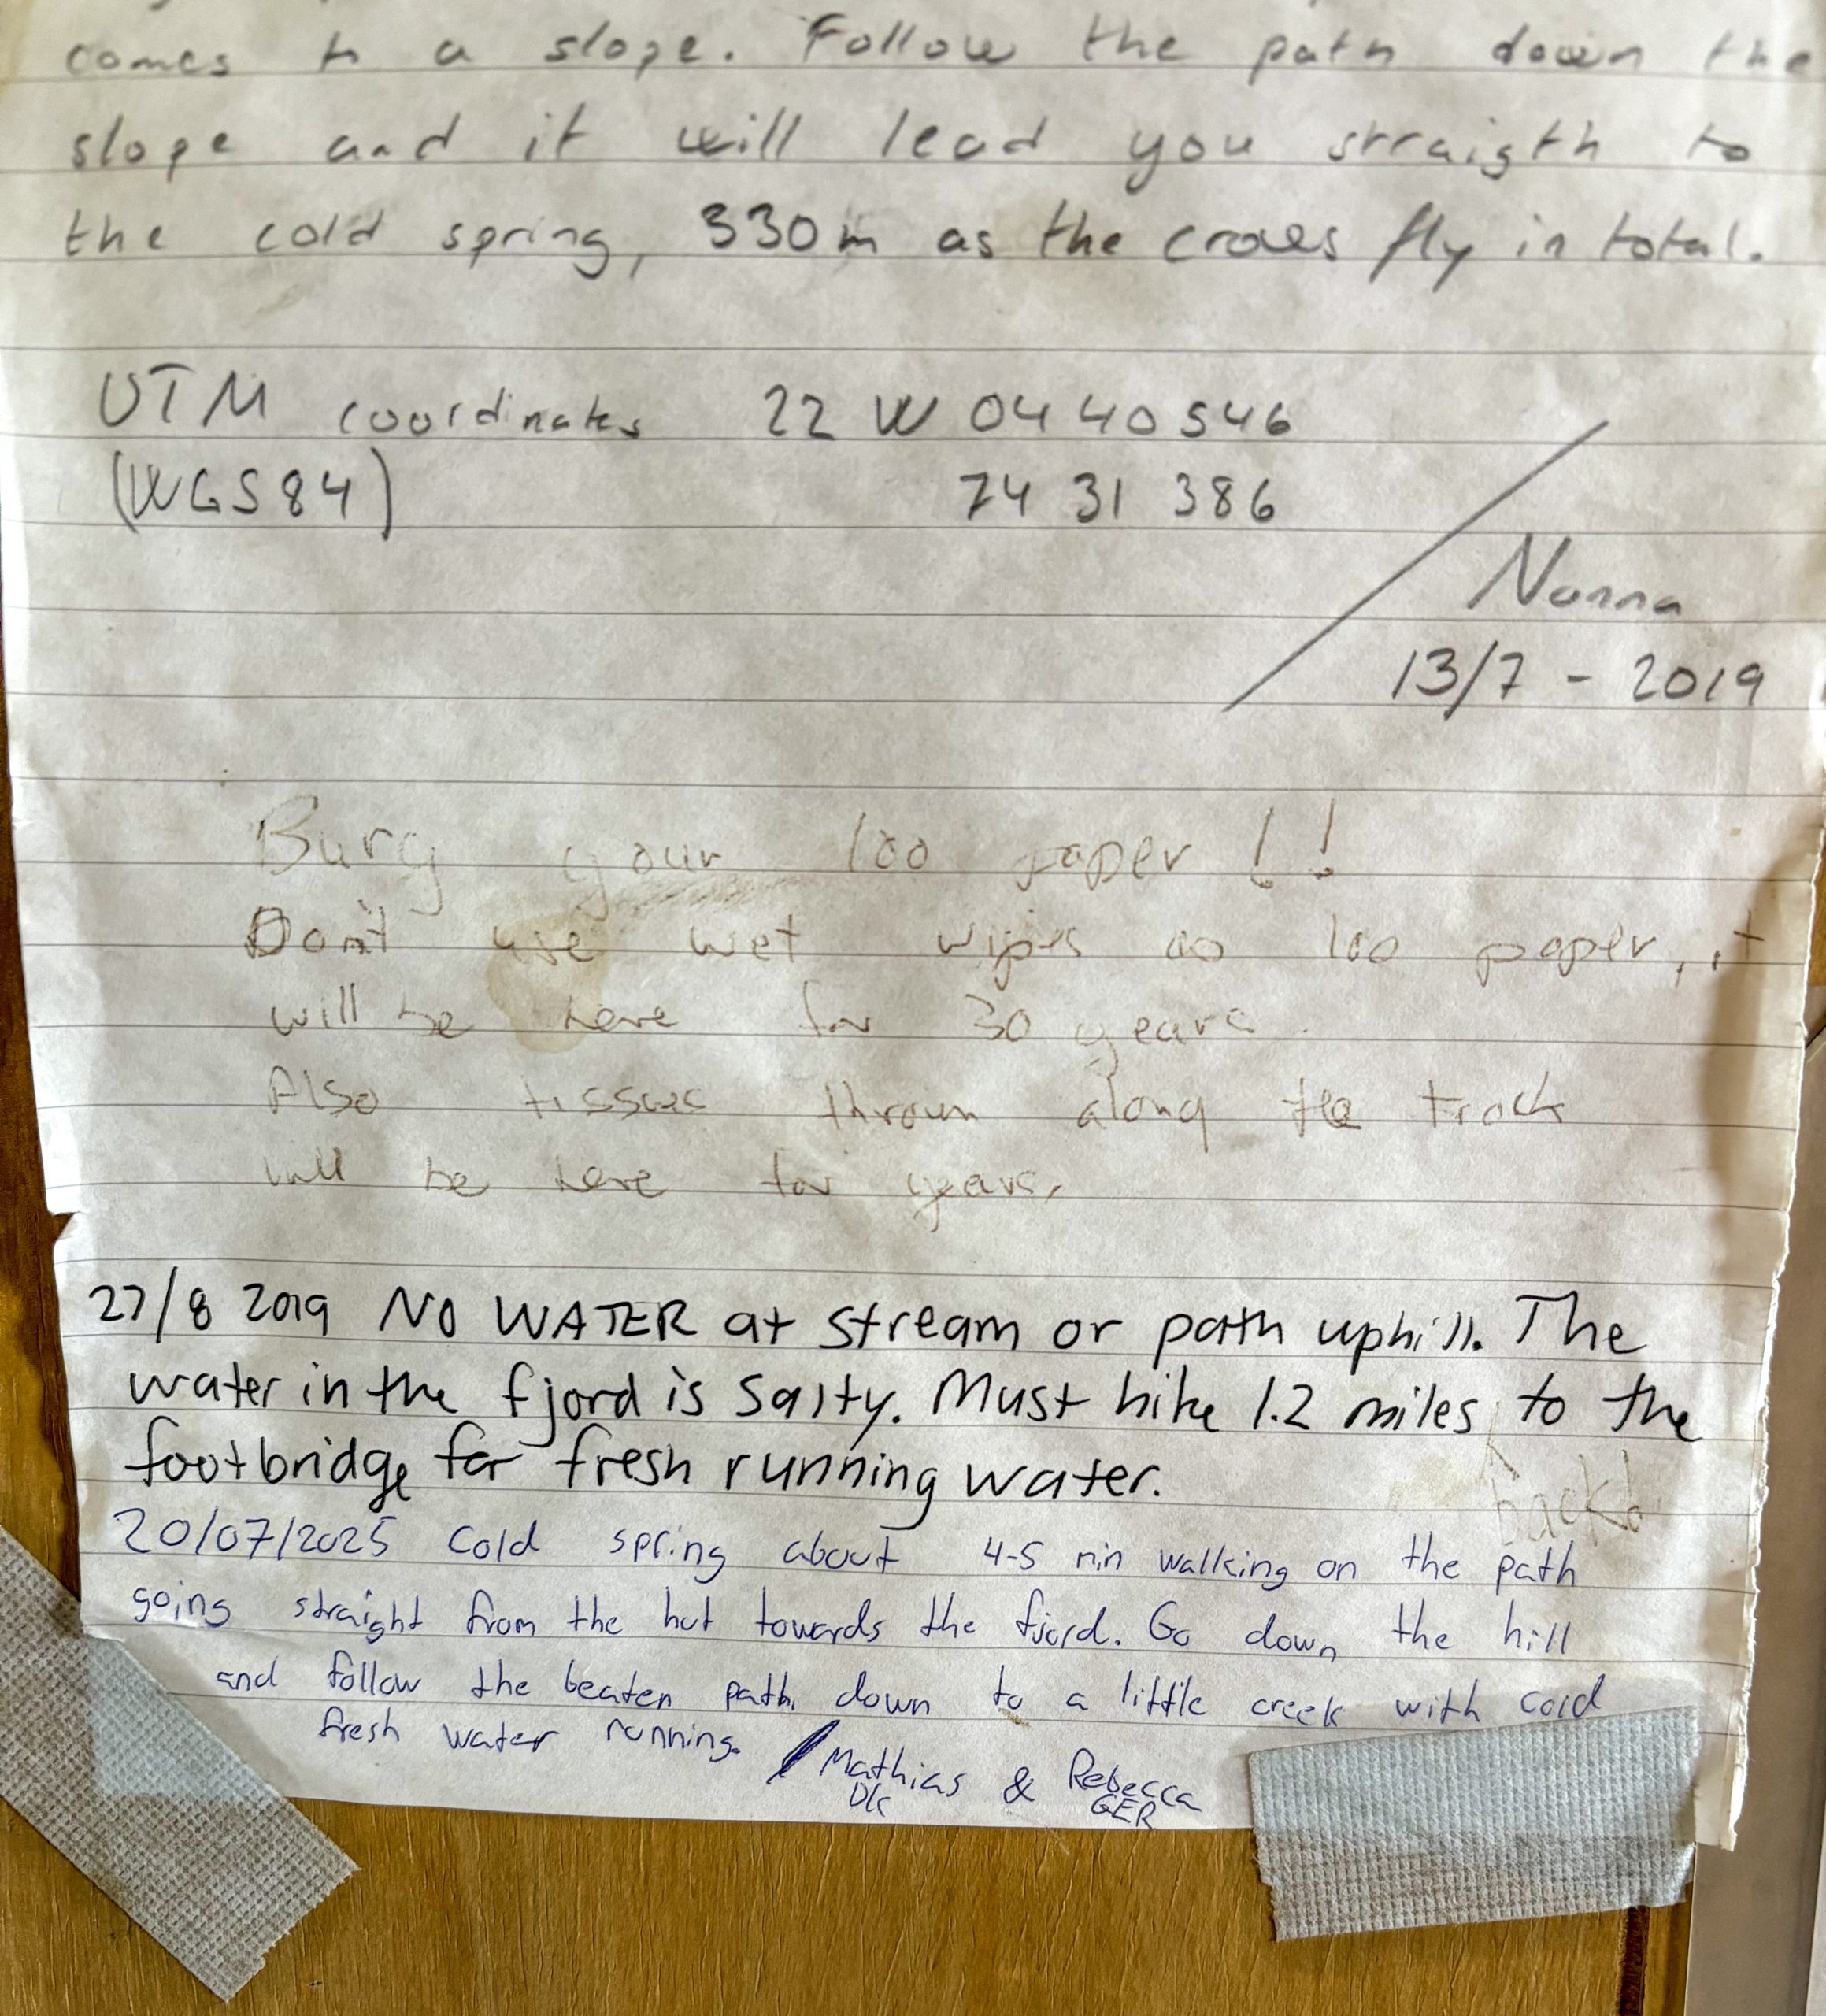 comes to a slope. Follow the path down the
slope and it will lead you straigth to
the cold spring, 330m as the crows fly in total.
UTM coordinates 22 W 04 40 546
(WGS84) 74 31 386
Nanna
13/7 - 2019
Bury your loo paper !!
Don't use wet wipes as loo paper, it
will be here for 30 years.
Also tissues thrown along the track
will be here for years.
27/8 2019 NO WATER at stream or path uphill. The
water in the fjord is salty. Must hike 1.2 miles to the
footbridge for fresh running water.
back!
20/07/2025 Cold spring about 4-5 min walking on the path
going straight from the hut towards the fjord. Go down the hill
and follow the beaten path down to a little creek with cold
fresh water running. / Mathias & Rebecca
DK GER